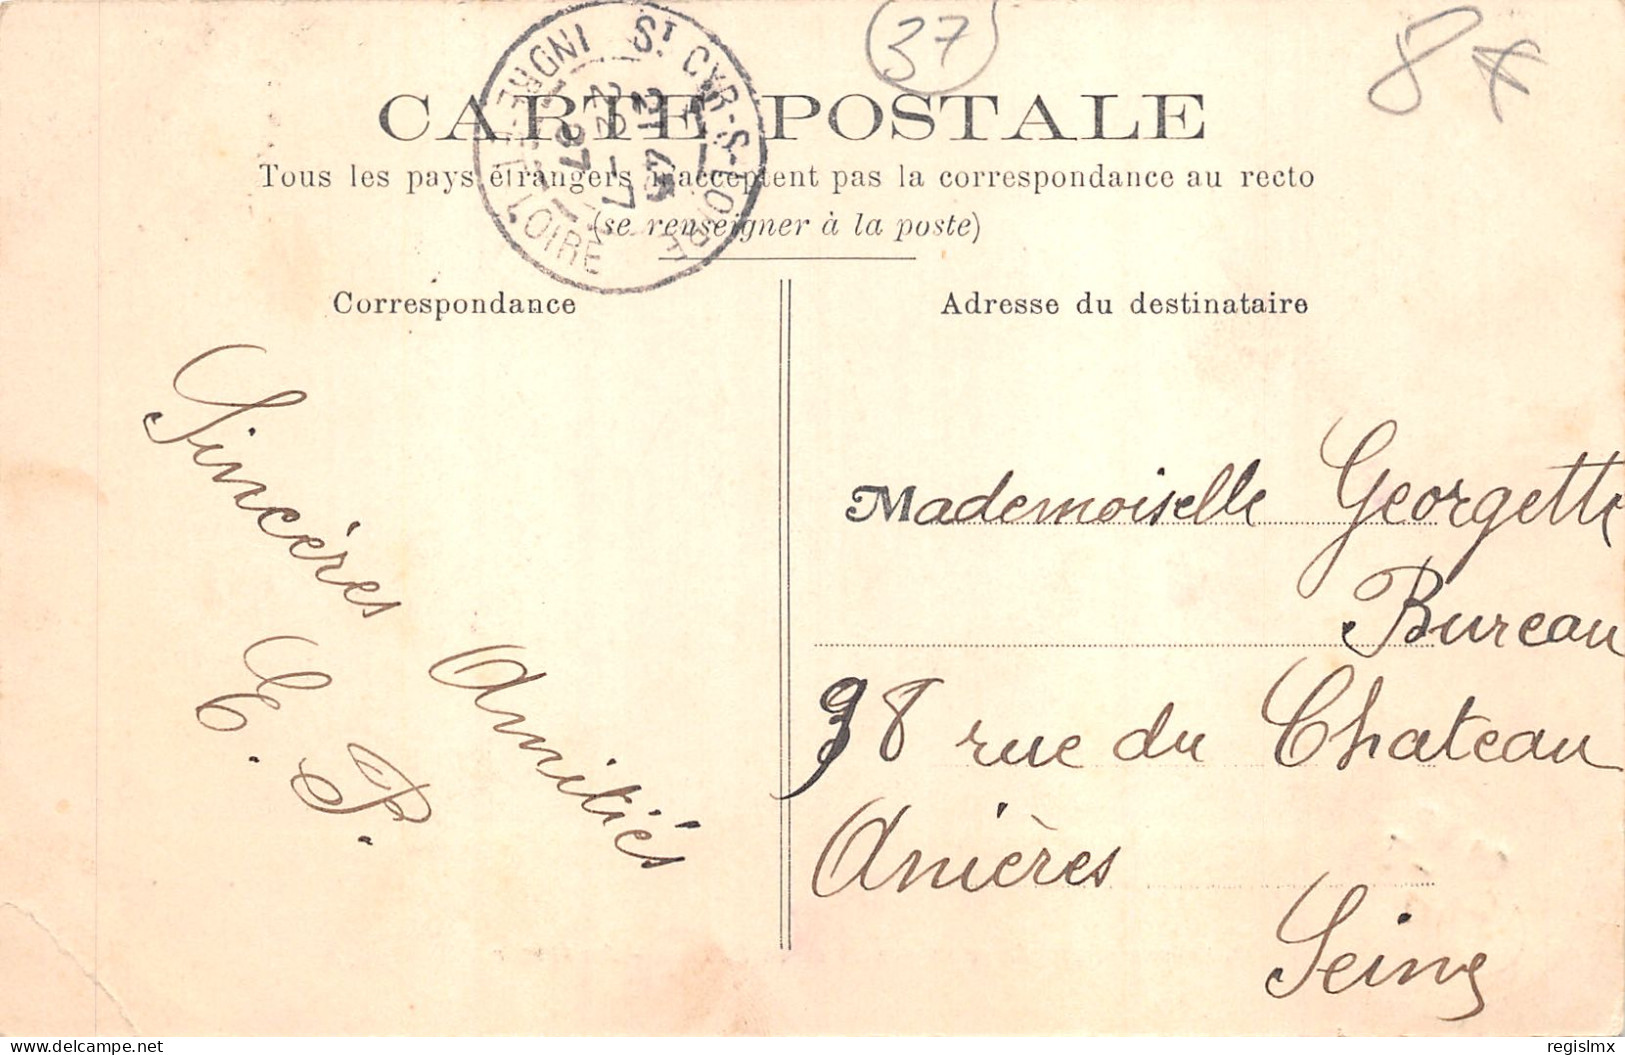 37
8
CARTE POSTALE
Tous les pays étrangers n'acceptent pas la correspondance au recto
(se renseigner à la poste)
ST CYR-S-LOIRE
INDRE-ET-LOIRE
Correspondance
Sincères Amitiés
E. P.
Adresse du destinataire
Mademoiselle Georgette
Bureau
38 rue du Chateau
Anières
Seine
delcampe.net
regislmx